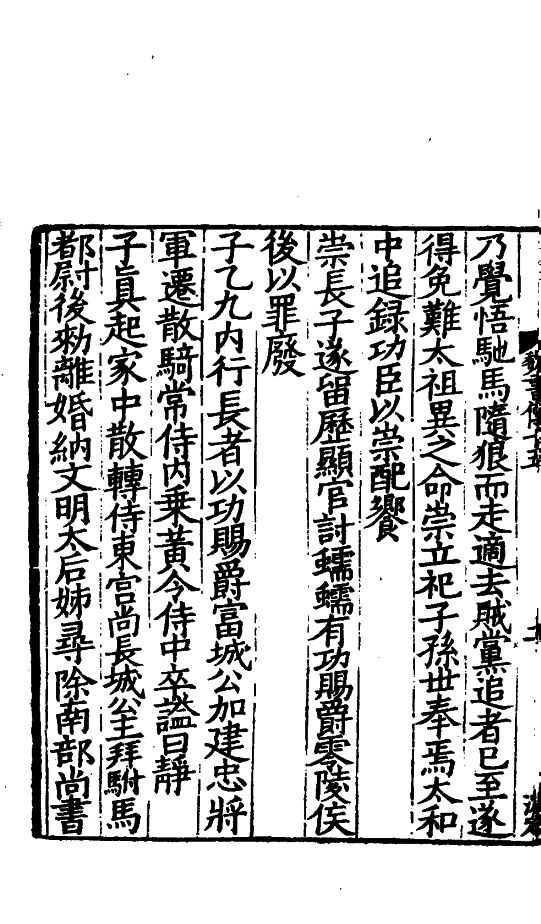 乃覺悟馳馬隨狼而走適去賊黨追者已至遂
得免難太祖異之命崇立祀子孫世奉焉太和
中追録功臣以崇配饗
崇長子遂留歷顯官討蠕蠕有功賜爵零陵侯
後以罪廢
子乙九內行長者以功賜爵富城公加建忠將
軍遷散騎常侍內乗黃令侍中卒謚曰靜
子眞起家中散轉侍東宮尚長城公主拜駙馬
都尉後勑離婚納文明太后姊尋除南部尚書